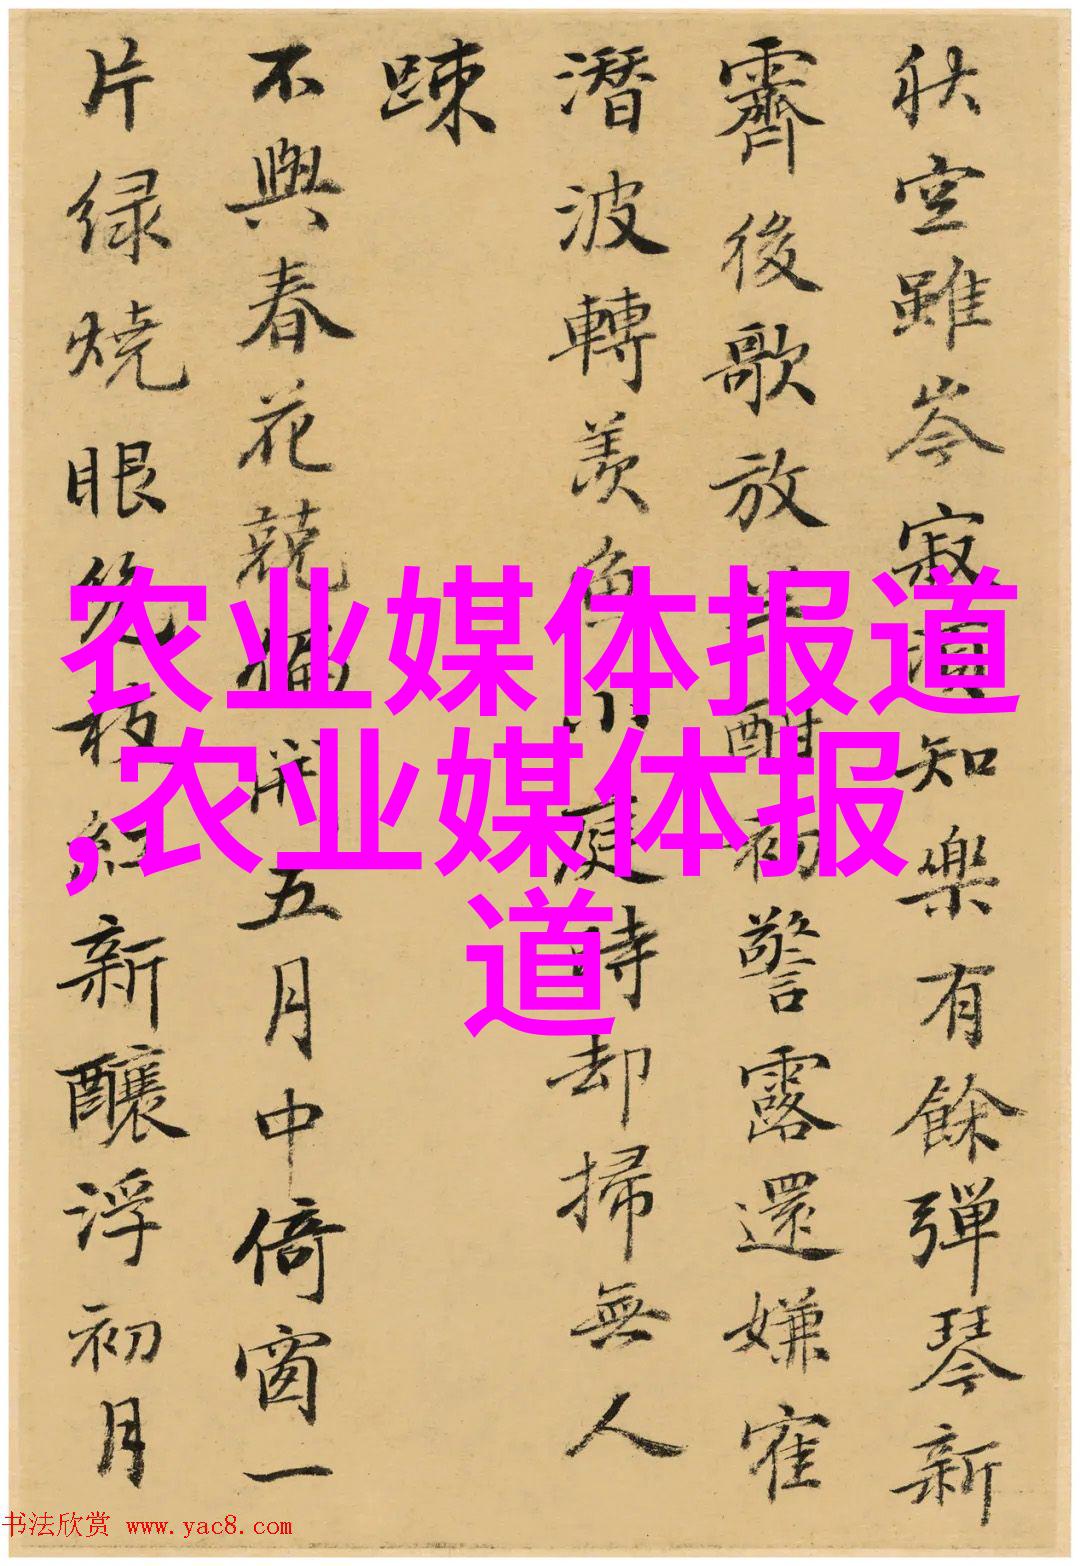 秋空雖岑寂知樂有餘彈琴新
霽後歌放半酣初警露還嫌寉
潛波轉羨魚小庭時却掃無人
踈
不與春花競開五月中倚窗一
片绿燒眼枝紅新釀浮初月
农业媒体报道
,农业媒体报
道
书法欣赏 www.yac8.com